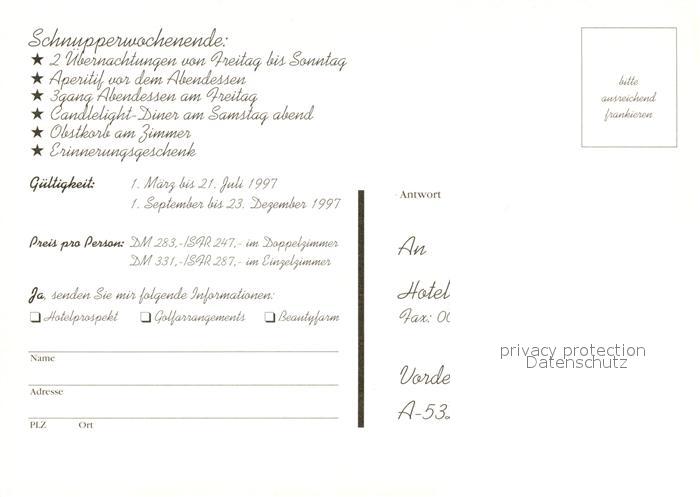 Schnupperwochenende:
★ 2 Übernachtungen von Freitag bis Sonntag
★ Aperitif vor dem Abendessen
★ 3gang Abendessen am Freitag
★ Candlelight-Diner am Samstag abend
★ Obstkorb am Zimmer
★ Erinnerungsgeschenk
Gültigkeit: 1. März bis 21. Juli 1997
1. September bis 23. Dezember 1997
Preis pro Person: DM 283,-/SFR 247,- im Doppelzimmer
DM 331,-/SFR 287,- im Einzelzimmer
Ja, senden Sie mir folgende Informationen:
❏ Hotelprospekt ❏ Golfarrangements ❏ Beautyfarm
Name
Adresse
PLZ Ort
bitte
ausreichend
frankieren
Antwort
An
Hotel
Fax: 00
Vorde
A-53
privacy protection
Datenschutz